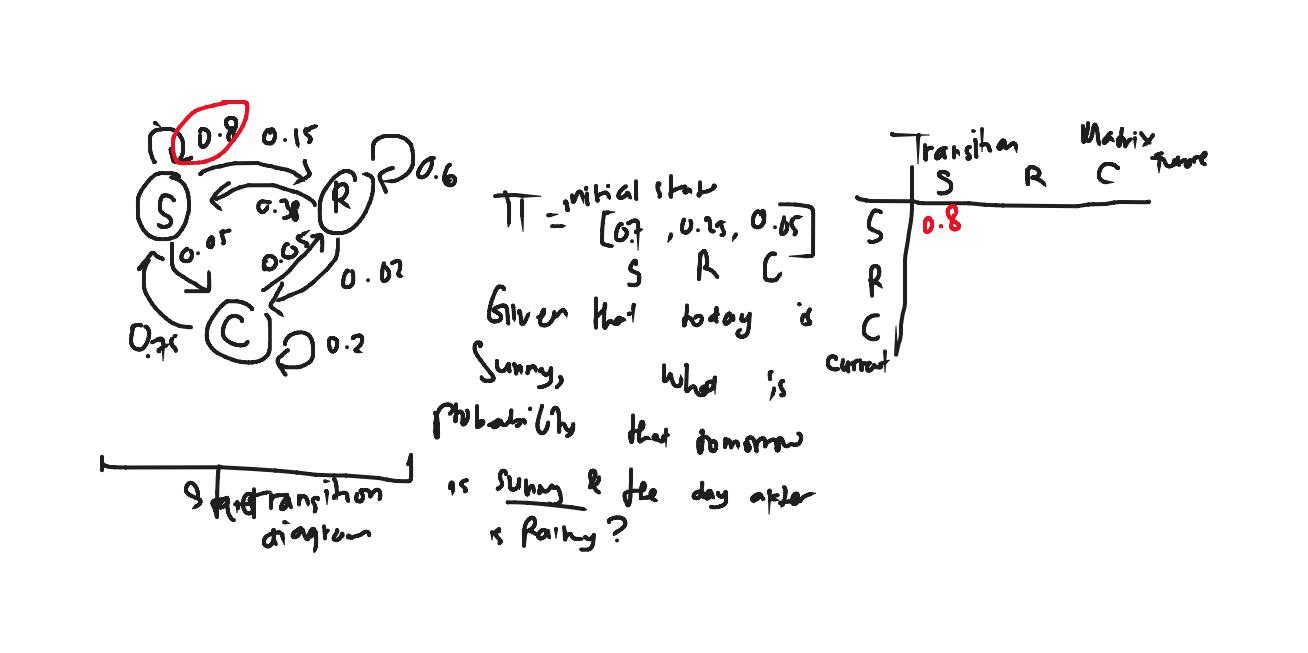 0.8 0.15
S R 0.6
0.38
0.05 0.05 0.02
C
0.75 0.2
transition
diagram
π = initial state
[0.7, 0.25, 0.05]
S R C
Given that today is
Sunny, what is
probability that tomorrow
is sunny & the day after
is Rainy?
Transition Matrix
future
S R C
S 0.8
R
C
current